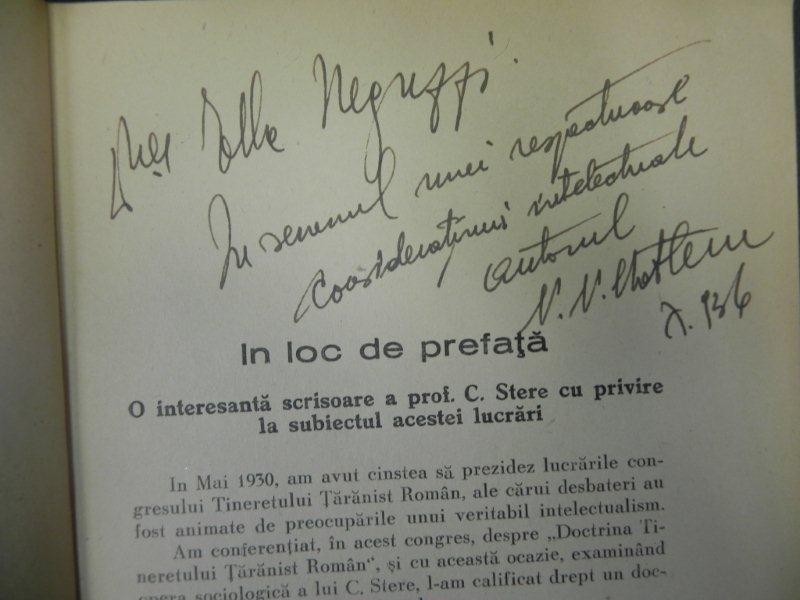 Ella Negruzzi.
În semnul unei respectuoase
considerațiuni intelectuale
autorul
N. N.
X. 936
In loc de prefață
O interesantă scrisoare a prof. C. Stere cu privire
la subiectul acestei lucrări
In Mai 1930, am avut cinstea să prezidez lucrările con-
gresului Tineretului Țărănist Român, ale cărui desbateri au
fost animate de preocupările unui veritabil intelectualism.
Am conferențiat, în acest congres, despre „Doctrina Ti-
neretului Țărănist Român“, și cu această ocazie, examinând
opera sociologică a lui C. Stere, l-am calificat drept un doc-